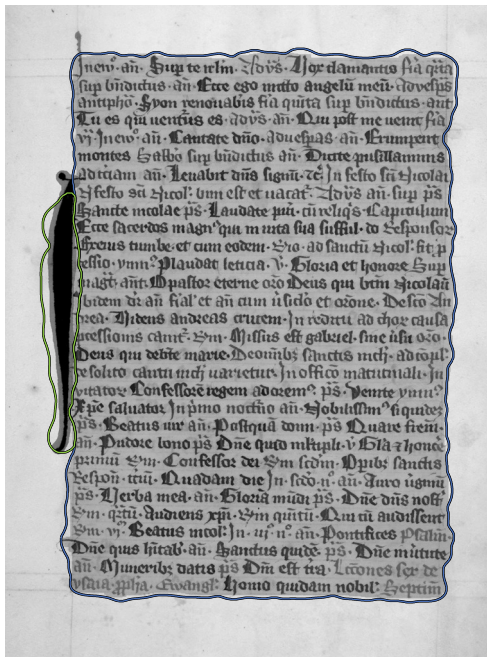 In euῶ· an̄· Sup te irlm· Ad vꝑs· Vox clamantis fīa q̄rta
sup bn̄dictus· an̄· Ecce ego mitto angelū meū· ad vesꝑas
antiphō· Syon renouabis fīa quīta sup bn̄dictus· ant
Tu es qui uenturus es· ad vꝑs· an̄· Qui post me uenit fīa
vj· In euō· an̄· Cantate dn̄o· ad vesꝑas· an̄· Erumpent
montes Sabbō sup bn̄dictus an̄· Dicite pusillanimis
ad
an̄· Leuabit dn̄s signū· In festo sc̄i Nicolai
festo sc̄i Nicol· an̄· sup p̄s
Sancte nicolae p̄s· Laudate pu̅i· cū reliq̄s· Capitulum
Ecce sacerdos magn᷒ qui in uita sua sufful· do Responsor
Ex eius tumbe· et cum eodem· ad sanctū Nicol· fit p̄
cessio· ymn᷒ Plaudat leticia· V̄· Gloria et honore Sup
magt̄· ant̄· O pastor eterne oro Deus qui btm̄ Nicolaū
ibidem dr̄ an̄ et an̄ cum et orōne· De sc̄o An
drea· Videns andreas crucem· In reditu ad chor causa
cessionis canit̄· Missus est gabriel· sine
Deus qui de marie· De om̄ibȝ sanctis
solito cantu In officō matutinali· In
uitator Confessorē regem adorem᷒· p̄s· Venite ymn᷒
Xp̄e saluator In p̄mo noctn̄o an̄· Nobilissim᷒ siquidez
p̄s· Beatus uir an̄· Postquā domi· p̄s Quare frem̄·
an̄· Pudore bono p̄s Dn̄e quid mltipli· v̄ Gl̄a ⁊ honore
primū· Confessor dei scd̄m· Op̄ibȝ sanctis
Respon̄· tciū· Quadam die In scd̄o· n̄· an̄· Auro uirginū
p̄s· Verba mea· an̄· Gloria mūdi p̄s· Dn̄e dn̄s nost̄
q̄rtū· Audiens xp̄i· quītū· Qui cū audissent
vj· Beatus nicol· In· iij· n̄· an̄· Pontifices Psalm·
Dn̄e quis hītab· an̄· Sanctus quidē· p̄s· Dn̄e in u̅tute
an̄· Muneribȝ datis p̄s Dn̄i est tr̄a· Lectōnes sex de
ysaia ꝓph̄a· Ewangl· Homo quidam nobil· Septim̄